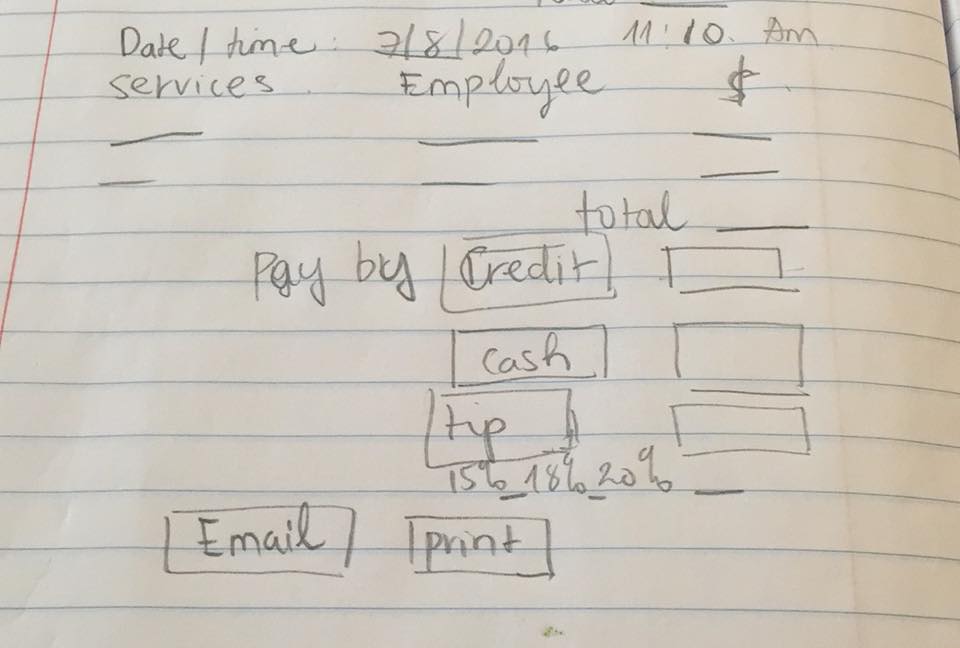 Date/time: 7/8/2016 11:10. Am
services. Employee $.
total
Pay by Credit
cash
tip
15%_18%_20%
Email print